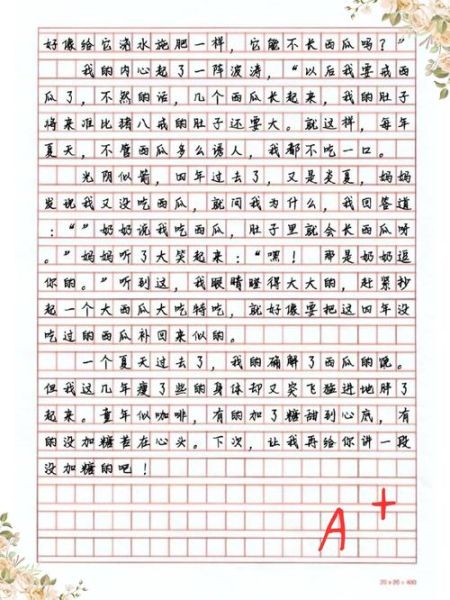 好像给它浇水施肥一样，它能不长西瓜吗？”
我的内心起了一阵波涛，“以后我要戒西
瓜了，不然的话，几个西瓜长起来，我的肚子
将来准比猪八戒的肚子还要大。就这样，每年
夏天，不管西瓜多么诱人，我都不吃一口。
光阴似箭，四年过去了，又是炎夏，妈妈
发现我又没吃西瓜，就问我为什么，我回答道
：“”奶奶说我吃西瓜，肚子里就会长西瓜呀
。”妈妈听了大笑起来：“嘿！那是奶奶逗
你的。”听到这，我眼睛瞪得大大的，赶紧抄
起一个大西瓜大吃特吃，就好像要把这四年没
吃过的西瓜补回来似的。
一个夏天过去了，我的确解了西瓜的馋。
但我这几年瘦了些的身体却又突飞猛进地胖了
起来。童年似咖啡，有的加了糖甜到心底，有
的没加糖苦在心头。下次，让我再给你讲一段
没加糖的吧！
A+
20×20=400